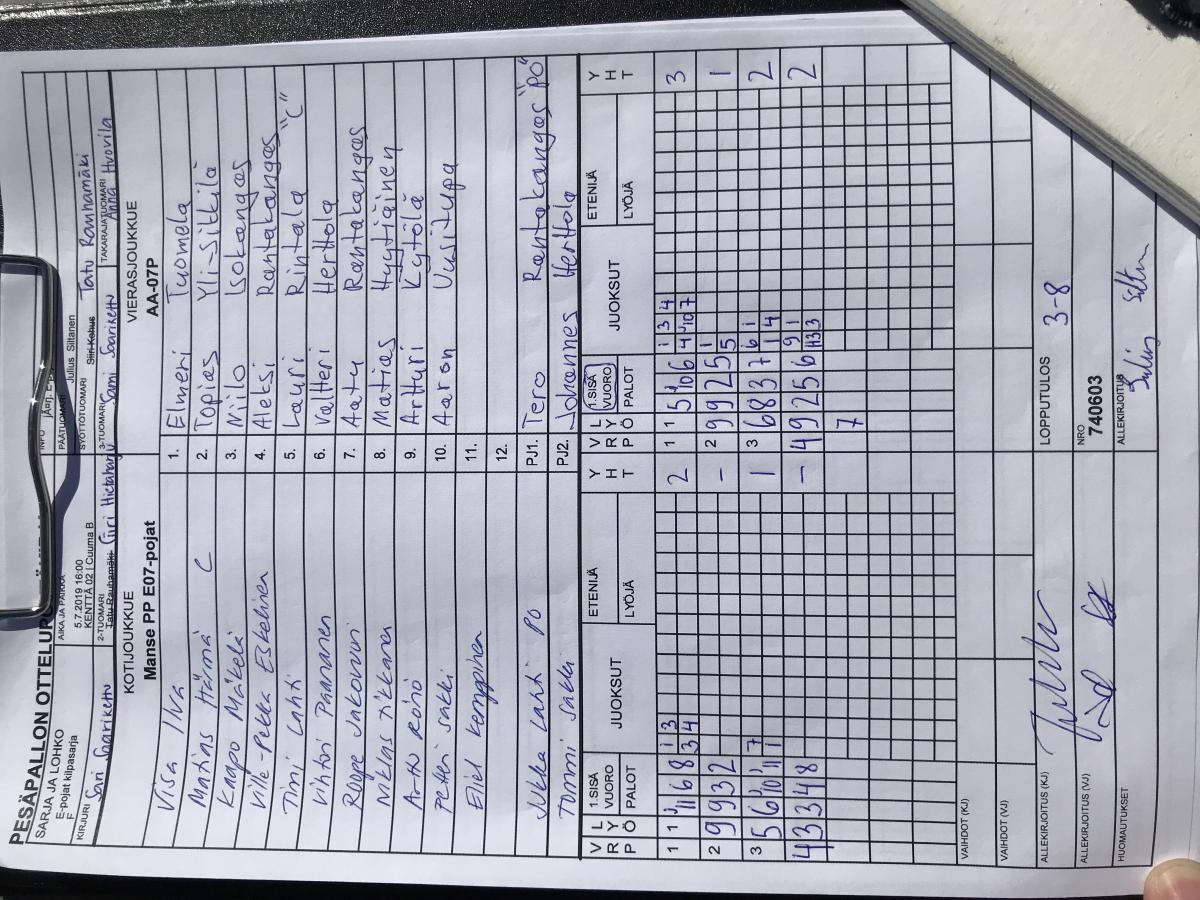 PESÄPALLON OTTELUPÖ
SARJA JA LOHKO
E-pojat kilpasarja
F
AIKA JA PAIKKA
5.7.2019 16:00
KENTTÄ 02 | Cuuma B
INFO
PÄÄTUOMARI
Julius Siltanen
KIRJURI
Sari Saarikettu
2-TUOMARI
Tatu Rauhamäki Siiri Hietaharju
SYÖTTÖTUOMARI
Siiri Kehus Tatu Rauhamäki
3-TUOMARI
Sami Saarikettu
TAKARAJATUOMARI
Anna Huovila
KOTIJOUKKUE
Manse PP E07-pojat
VIERASJOUKKUE
AA-07P
Visa Iiva 1. Elmeri Tuomela
Matias Härmä C 2. Topias Yli-Sitkilä
Kaapo Mäkelä 3. Niilo Isokangas
Ville-Pekka Eskelinen 4. Aleksi Rantakangas
Timi Lahti 5. Lauri Rintala "C"
Vihtori Paananen 6. Valtteri Herttola
Roope Jakovuori 7. Aatu Rantakangas
Niklas Tikkanen 8. Matias Hyytiäinen
Arttu Roino 9. Artturi Kytölä
Petteri Sakki 10. Aaron Uusitupa
Eliel Kemppinen 11.
12.
Jukka Lahti PO PJ1. Tero Rantakangas "PO"
Tommi Sakki PJ2. Johannes Herttola
V R P L Y Ö 1.SISÄ VUORO PALOT JUOKSUT ETENIJÄ LYÖJÄ Y H T V R P L Y Ö 1.SISÄ VUORO PALOT JUOKSUT ETENIJÄ LYÖJÄ Y H T
1 1 11 6 8 1 3 2 1 1 5 10 6 1 3 4 3
3 4 4 10 7
2 9 9 3 2 - 2 9 9 2 5 1 1
5
3 5 6 10 11 7 1 3 6 8 3 7 6 1 2
1 1 4
4 3 3 4 8 - 4 9 2 5 6 9 1 2
3
7
VAIHDOT (KJ)
VAIHDOT (VJ)
ALLEKIRJOITUS (KJ)
LOPPUTULOS 3-8
ALLEKIRJOITUS (VJ)
NRO
740603
HUOMAUTUKSET
ALLEKIRJOITUS